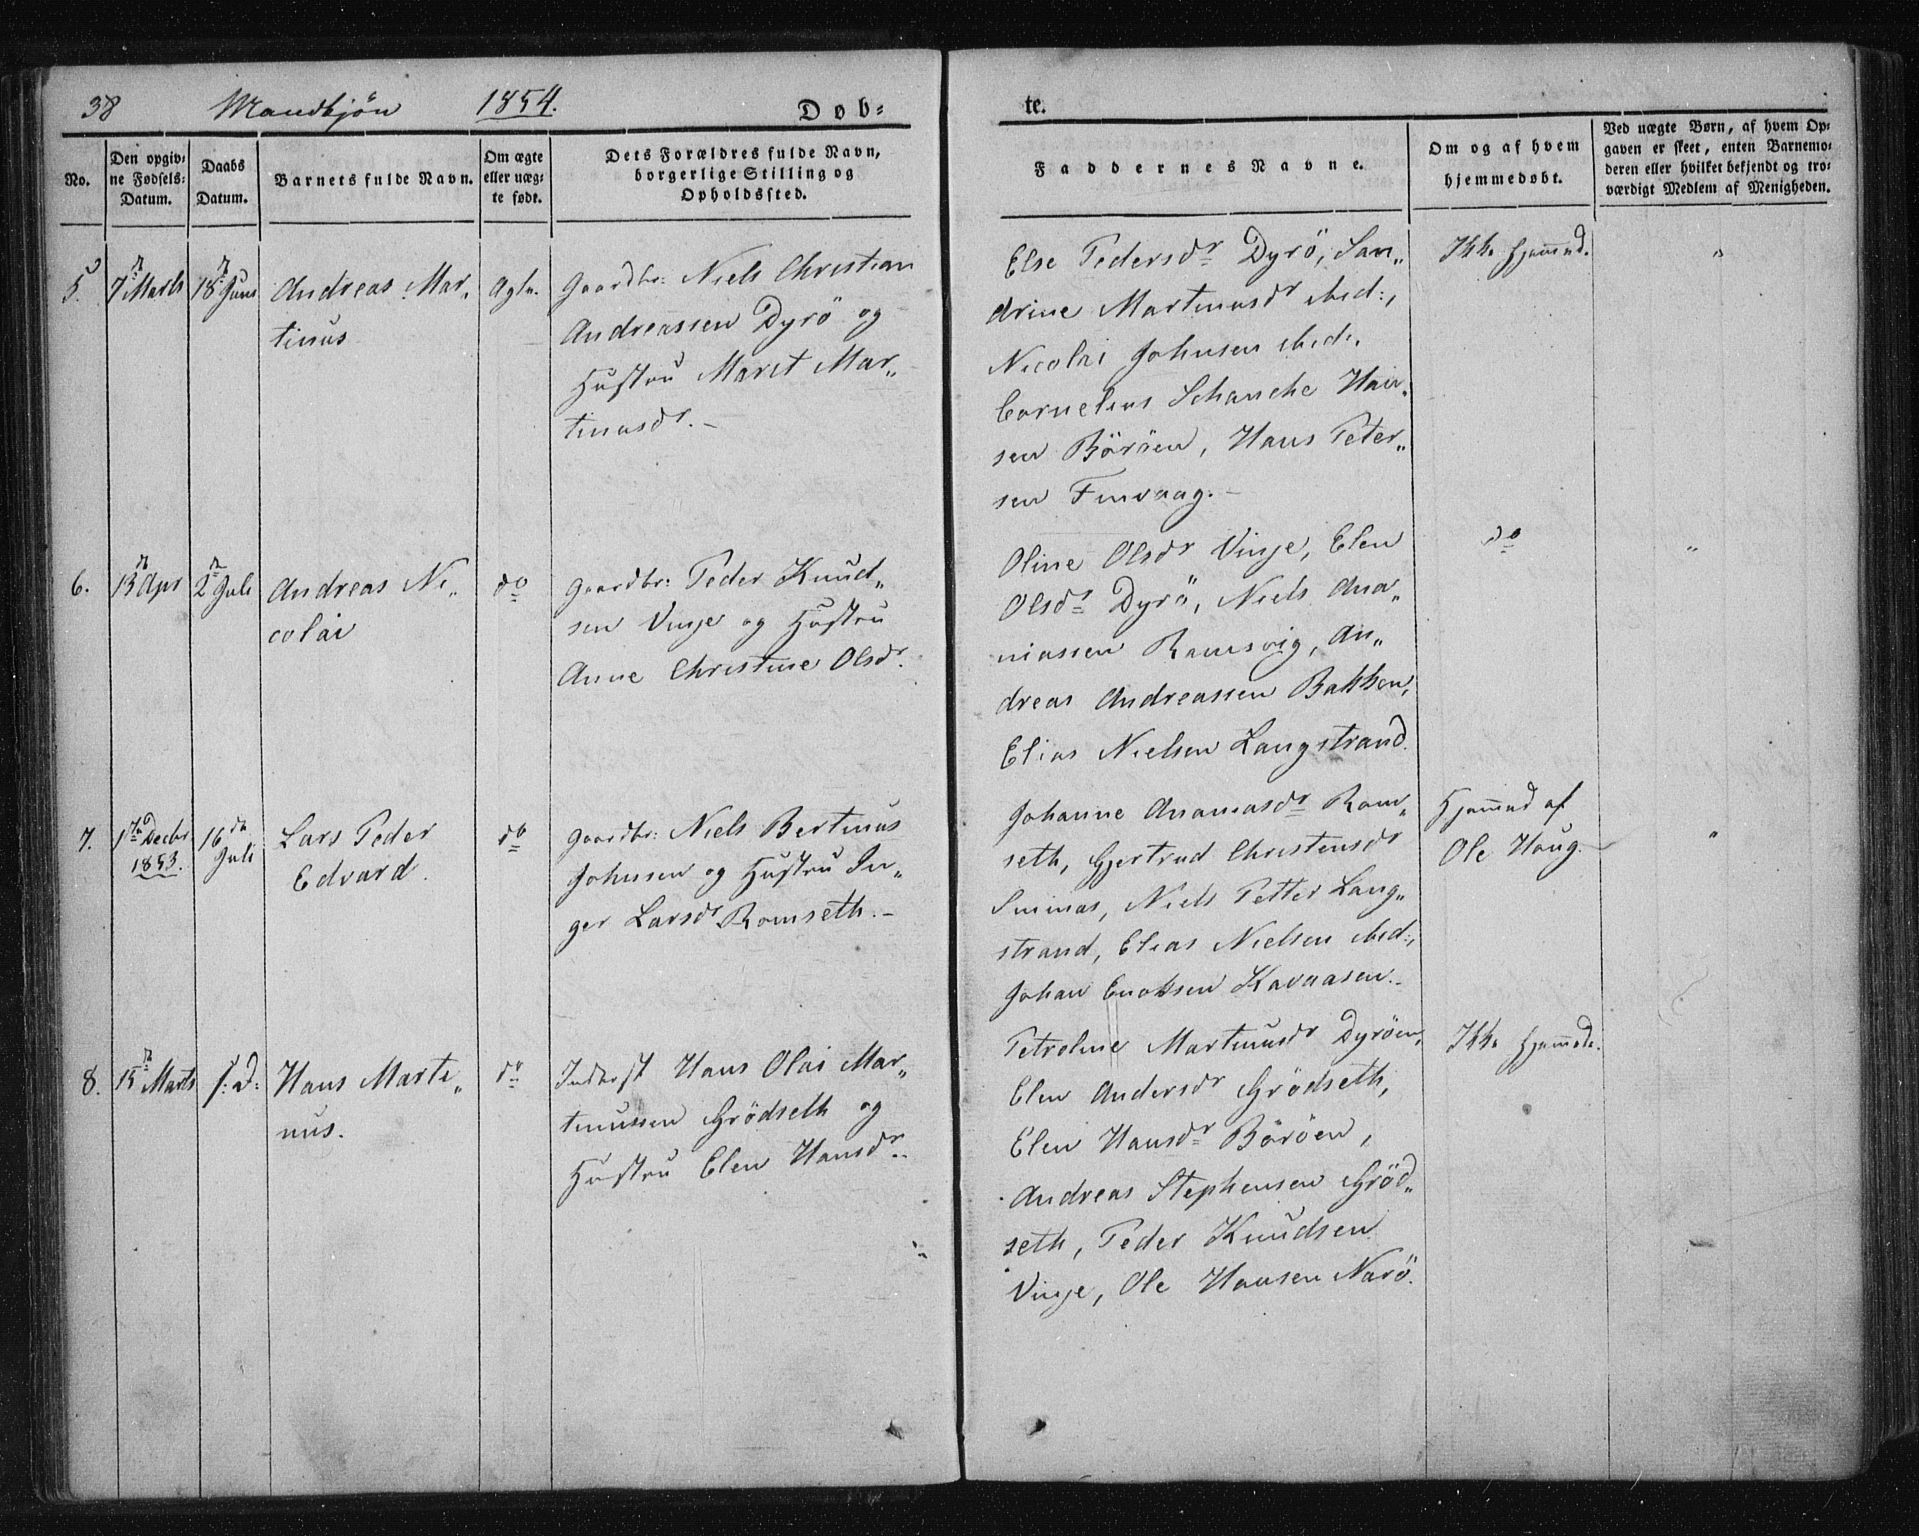 38 Mandkjön 1854. Døb-
te.
No.
Den opgiv-
ne Fødsels-
Datum.
Daabs
Datum.
Barnets fulde Navn.
Om ægte
eller uæg-
te født.
Dets Forældres fulde Navn,
borgerlige Stilling og
Opholdssted.
Faddernes Navne.
Om og af hvem
hjemmedøbt.
Ved uægte Børn, af hvem Op-
gaven er skeet, enten Barnemo-
deren eller hvilket bekjendt og tro-
værdigt Medlem af Menigheden.
5. 7de Marts 18de Juni
Andreas Mar-
tinus
Ægte.
Gaardbr: Niels Christian
Andreassen Dyrö og
Hustru Marit Mar„
tinusdr. -
Else Pedersdr Dyrö, San„
drine Martinusdr ibid:,
Nicolai Johnsen ibid.
Cornelius Schanche Han„
sen Böröen, Hans Peter„
sen Finvaag. -
Ikke hjemmed.
"
6. 13de Apr 2de Juli
Andreas Ni„
colai
do
Gaardbr: Peder Knud„
sen Vinje og Hustru
Anne Christine Olsdr.
Oline Olsdr Vinje, Elen
Olsdr Dyrö, Niels Ana„
niassen Ramsvig, An„
dreas Andreassen Bakken,
Elias Nielsen Langstrand.
do
"
7. 1ste Decbr
1853.
16de
Juli
Lars Peder
Edvard.
do
Gaardbr: Niels Bertinus
Johnsen og Hustru In„
ger Larsdr Romseth. -
Johanne Ananiasdr Rom„
seth, Gjertrud Christensdr
Sninas, Niels Petter Lang„
strand, Elias Nielsen ibid:,
Johan Enoksen Kavaasen. -
Hjemmed af
Ole Haug.
"
8. 15de Marts s: D:
Hans Marti„
nus.
do
Inderst Hans Olai Mar„
tinussen Grödseth og
Hustru Elen Hansdr.
Petroline Martinusdr Dyröen,
Elen Andersdr Grödseth,
Elen Hansdr Böröen,
Andreas Stephensen Gröd„
seth, Peder Knudsen
Vinje, Ole Hansen Narö.
Ikke hjemmed.